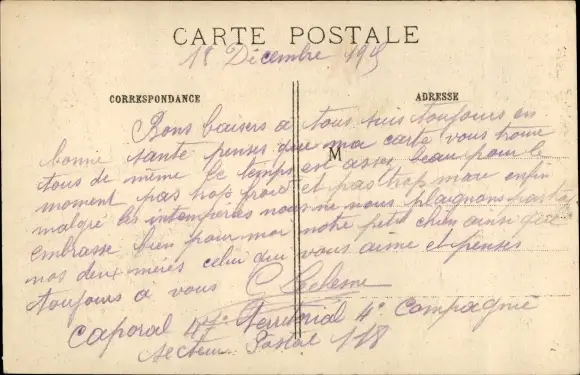 CARTE POSTALE
18 Décembre 191
CORRESPONDANCE
ADRESSE
Bons baisers à tous suis toujours en
bonne santé penses que ma carte vous trouve
M
tous de même le temps est assez beau pour le
moment pas trop froid et pas trop mare enfin
malgré les intempéries nous ne nous plaignons pas trop
embrasse bien pour moi notre petit chien ainsi que
nos deux mères celui qui vous aime et penses
toujours à vous
Caporal 47e Territorial 4e Compagnie
Secteur Postal 118